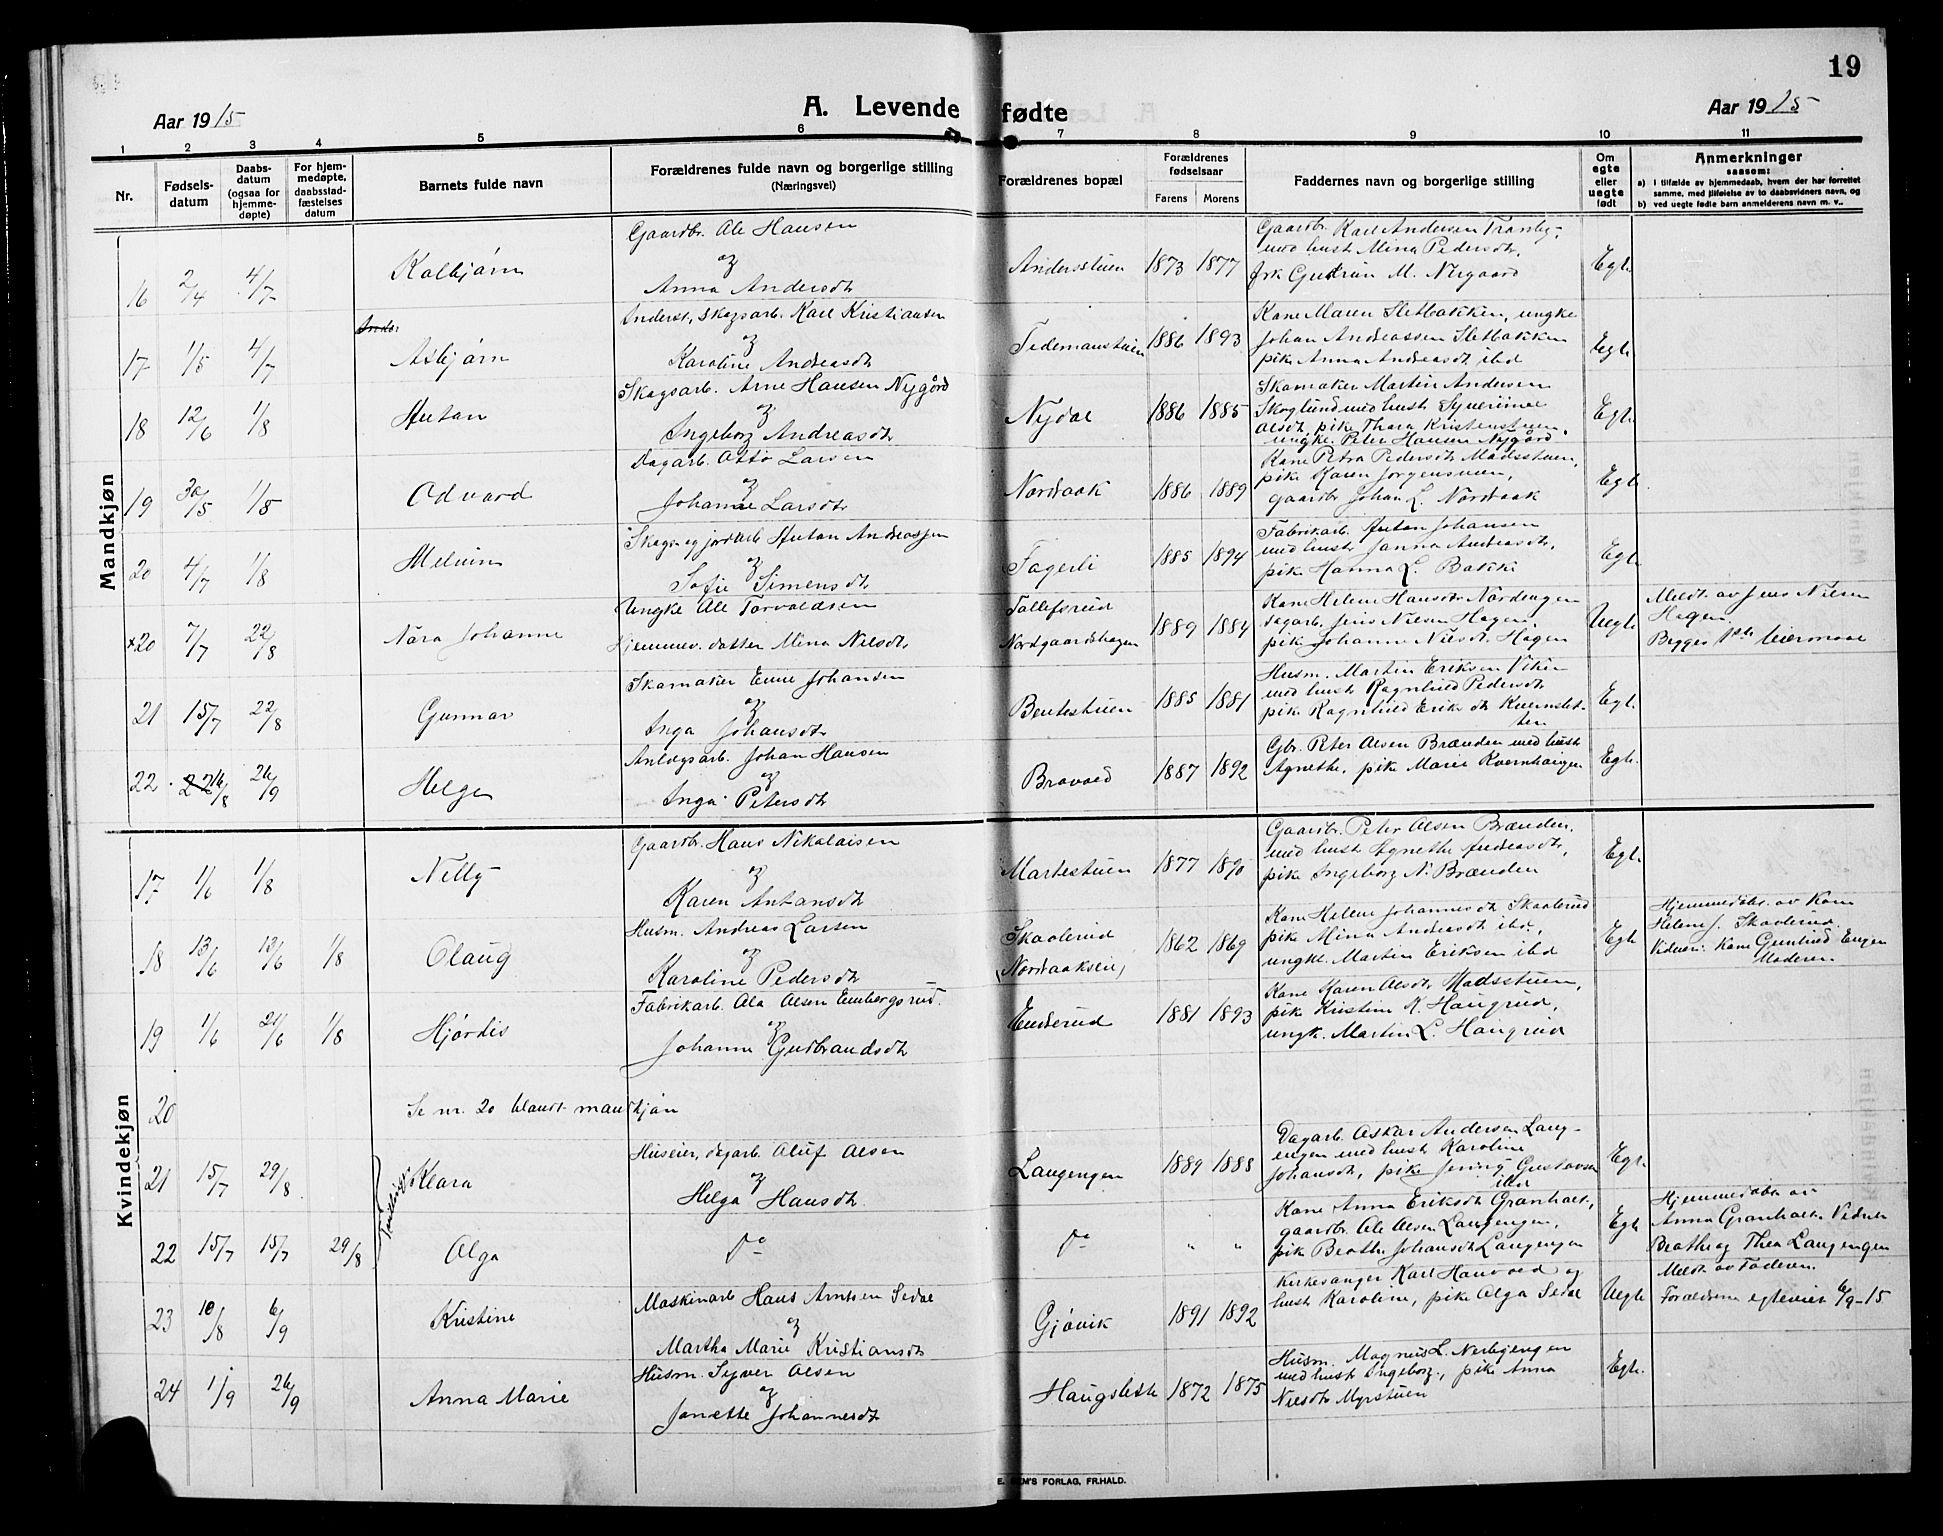 19
Aar 1915
A. Levende fødte
Aar 1915
1 2 3 4 5 6 7 8 9 10 11
Nr.
Fødsels-
datum
Daabs-
datum
(ogsaa for
hjemme-
døpte)
For hjem-
medøpte,
daabsstad-
fæstelses
datum
Barnets fulde navn
Forældrenes fulde navn og borgerlige stilling
(Næringsvei)
Forældrenes bopæl
Forældrenes
fødselsaar
Farens Morens
Faddernes navn og borgerlige stilling
Om
egte
eller
uegte
født
Anmerkninger
saasom:
a) i tilfælde av hjemmedaab, hvem der har forrettet
samme, med tilføielse av to daabsvidners navn, og
b) ved uegte fødte barn anmelderens navn m. v..
Mandkjøn
16 2/4 4/7 Kolbjørn
Gaardbr. Ole Hansen
og
Anna Andersdt
Andersstuen 1873 1877
Gaardbr. Karl Andersen Tranby,
med hust Mina Pedersdt,
frk Gudrun M. Nygaard
Egte
17 1/5 4/7 Asbjørn
Inderst, skogsarb. Karl Kristiansen
og
Karoline Andreasdt
Tedemanstuen 1886 1893
Kone Maren Sletbakken, ungke
Johan Andreassen Sletbakken
pike Anna Andreasdt ibd
Egte
18 12/6 1/8 Hutan
Skogsarb. Arne Hansen Nygård
og
Ingeborg Andreasdt
Nydal 1886 1885
Skomaker Martin Andersen
Skoglund med hust Syverine
Olsdt, pike Thora Kristenstuen,
ungke. Peter Hansen Nygård
Egte
19 30/5 1/8 Odvard
Dagarb. Otto Larsen
og
Johanne Larsdt
Nordaak 1886 1889
Kone Petra Pedersdt Madsstuen,
pike Karen Jørgensuen,
gaardbr Johan L. Nordaak
Egte
20 4/7 1/8 Melvin
Skogs og jordarb Hutan Andreassen
og
Sofie Simensdt
Fagerli 1885 1894
Fabrikarb. Anton Johansen
med hust Janna Andreasdt,
pike Hanna L. Bakke
Egte
×20 7/7 22/8 Nora Johanne
Ungke Ole Torvaldsen
Hjemmev. datter Mina Nilsdt,
Tollefsrud
Nordgaardshagen 1889 1884
Kone Helene Hansdt Nordengen
dagarb. Jens Nielsen Hagen,
pik Johanne Nilsdt Hagen
Uegte
Meldt av Jens Nilsen
Hagen.
Begges 1ste leiermaal
21 15/7 22/8 Gunnar
Skomaker Emil Johansen
og
Inga Johansdt
Bentestuen 1885 1881
Husm. Martin Eriksen Viken
med hust Ragnhild Pedersdt
pike Ragnhild Eriksdt Kvernslet-
ten
Egte
22 16/8 26/9 Helge
Anlegsarb. Johan Hansen
og
Inga Petersdt
Bravold 1887 1892
Gbr. Peter Olsen Brænden med hust
Agnethe, pike Marie Kvernhaugen
Egte
Kvindekjøn
17 1/6 1/8 Nelly
Gaardbr. Hans Nikolaisen
og
Karen Antonsdt
Martestuen 1877 1890
Gaardbr. Peter Olsen Brænden,
med hust Agnethe Andreasdt,
pike Ingeborg N. Brænden
Egte
18 13/6 13/6 1/8 Olaug
Husm. Andreas Larsen
og
Karoline Pedersdt
Skaalerud
(Nordaakseie) 1862 1869
Kone Helene Johannesdt Skaalerud
pike Mina Andreasdt ibd,
ungke. Martin Eriksen ibd
Egte
Hjemmedøbt av Kone
Helene J. Skaalerud.
Vidner: Kone Gunhild Engen
Moderen
19 1/6 21/6 1/8 Hjørdis
Fabrikarb. Ola Olsen Embergsrud.
og
Johanne Gudbrandsdt
Enderud 1881 1893
Kone Karen Olsdt Madsstuen,
pike Kristine K. Haugrud,
ungk. Martin L. Haugrud
20 Se nr. 20 blandt mandkjøn
21 15/7 29/8 Klara
Tvillinger
Huseier, dagarb Oluf Olsen
og
Helga Hansdt
Langengen 1889 1888
Dagarb. Oskar Andersen Lang-
engen med hust Karoline
Johansdt, pike Jenny Gustavsen
ibd
Egte
22 15/7 15/7 29/8 Olga
Do
Do " "
Kone Anna Eriksdt Granholt,
gaardbr. Ole Olsen Langengen,
pik Beathe Johansdt Langengen
Egte
Hjemmedøbt av
Anna Granholt. Vidner
Beathe og Thea Langengen
23 10/8 6/9 Kristine
Maskinarb Hans Arntsen Sedal
og
Martha Marie Kristiansdt
Gjøvik 1891 1892
Kirkesanger Karl Hanvold og
hust Karoline, pike Olga Sedal
Uegte
Meldt av Faderen.
Forældrene egteviet 6/9-15
24 1/9 26/9 Anna Marie
Husm. Syver Olsen
og
Janette Johannesdt
Haugslette 1872 1875
Husm. Magnus L. Nerbyengen
med hust Ingeborg, pike Anna
Nielsdt Myrstuen
Egte.
FORLAG, FR.HALD.